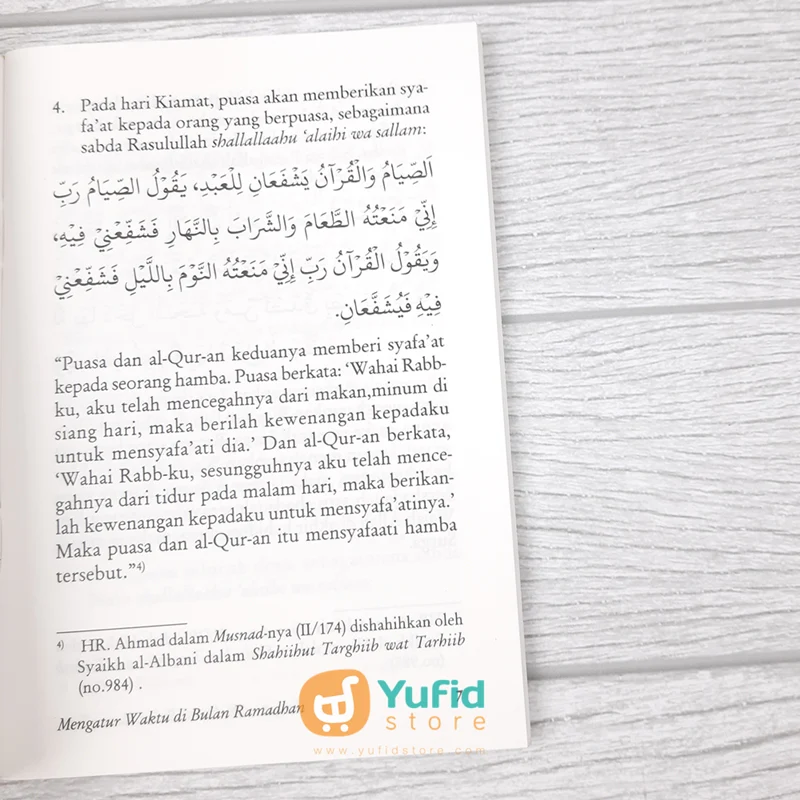 4. Pada hari Kiamat, puasa akan memberikan sya-
fa'at kepada orang yang berpuasa, sebagaimana
sabda Rasulullah shallallaahu 'alaihi wa sallam:
اَلصِّيَامُ وَالْقُرْآنُ يَشْفَعَانِ لِلْعَبْدِ، يَقُوْلُ الصِّيَامُ رَبِّ
إِنِّيْ مَنَعْتُهُ الطَّعَامَ وَالشَّرَابَ بِالنَّهَارِ فَشَفِّعْنِيْ فِيْهِ،
وَيَقُوْلُ الْقُرْآنُ رَبِّ إِنِّيْ مَنَعْتُهُ النَّوْمَ بِاللَّيْلِ فَشَفِّعْنِيْ
فِيْهِ فَيُشَفَّعَانِ.
“Puasa dan al-Qur-an keduanya memberi syafa'at
kepada seorang hamba. Puasa berkata: ‘Wahai Rabb-
ku, aku telah mencegahnya dari makan,minum di
siang hari, maka berilah kewenangan kepadaku
untuk mensyafa'ati dia.’ Dan al-Qur-an berkata,
‘Wahai Rabb-ku, sesungguhnya aku telah mence-
gahnya dari tidur pada malam hari, maka berikan-
lah kewenangan kepadaku untuk mensyafa'atinya.’
Maka puasa dan al-Qur-an itu mensyafaati hamba
tersebut.”4)
4) HR. Ahmad dalam Musnad-nya (II/174) dishahihkan oleh
Syaikh al-Albani dalam Shahiihut Targhiib wat Tarhiib
(no.984) .
Mengatur Waktu di Bulan Ramadhan 7
Yufid
store
www.yufidstore.com